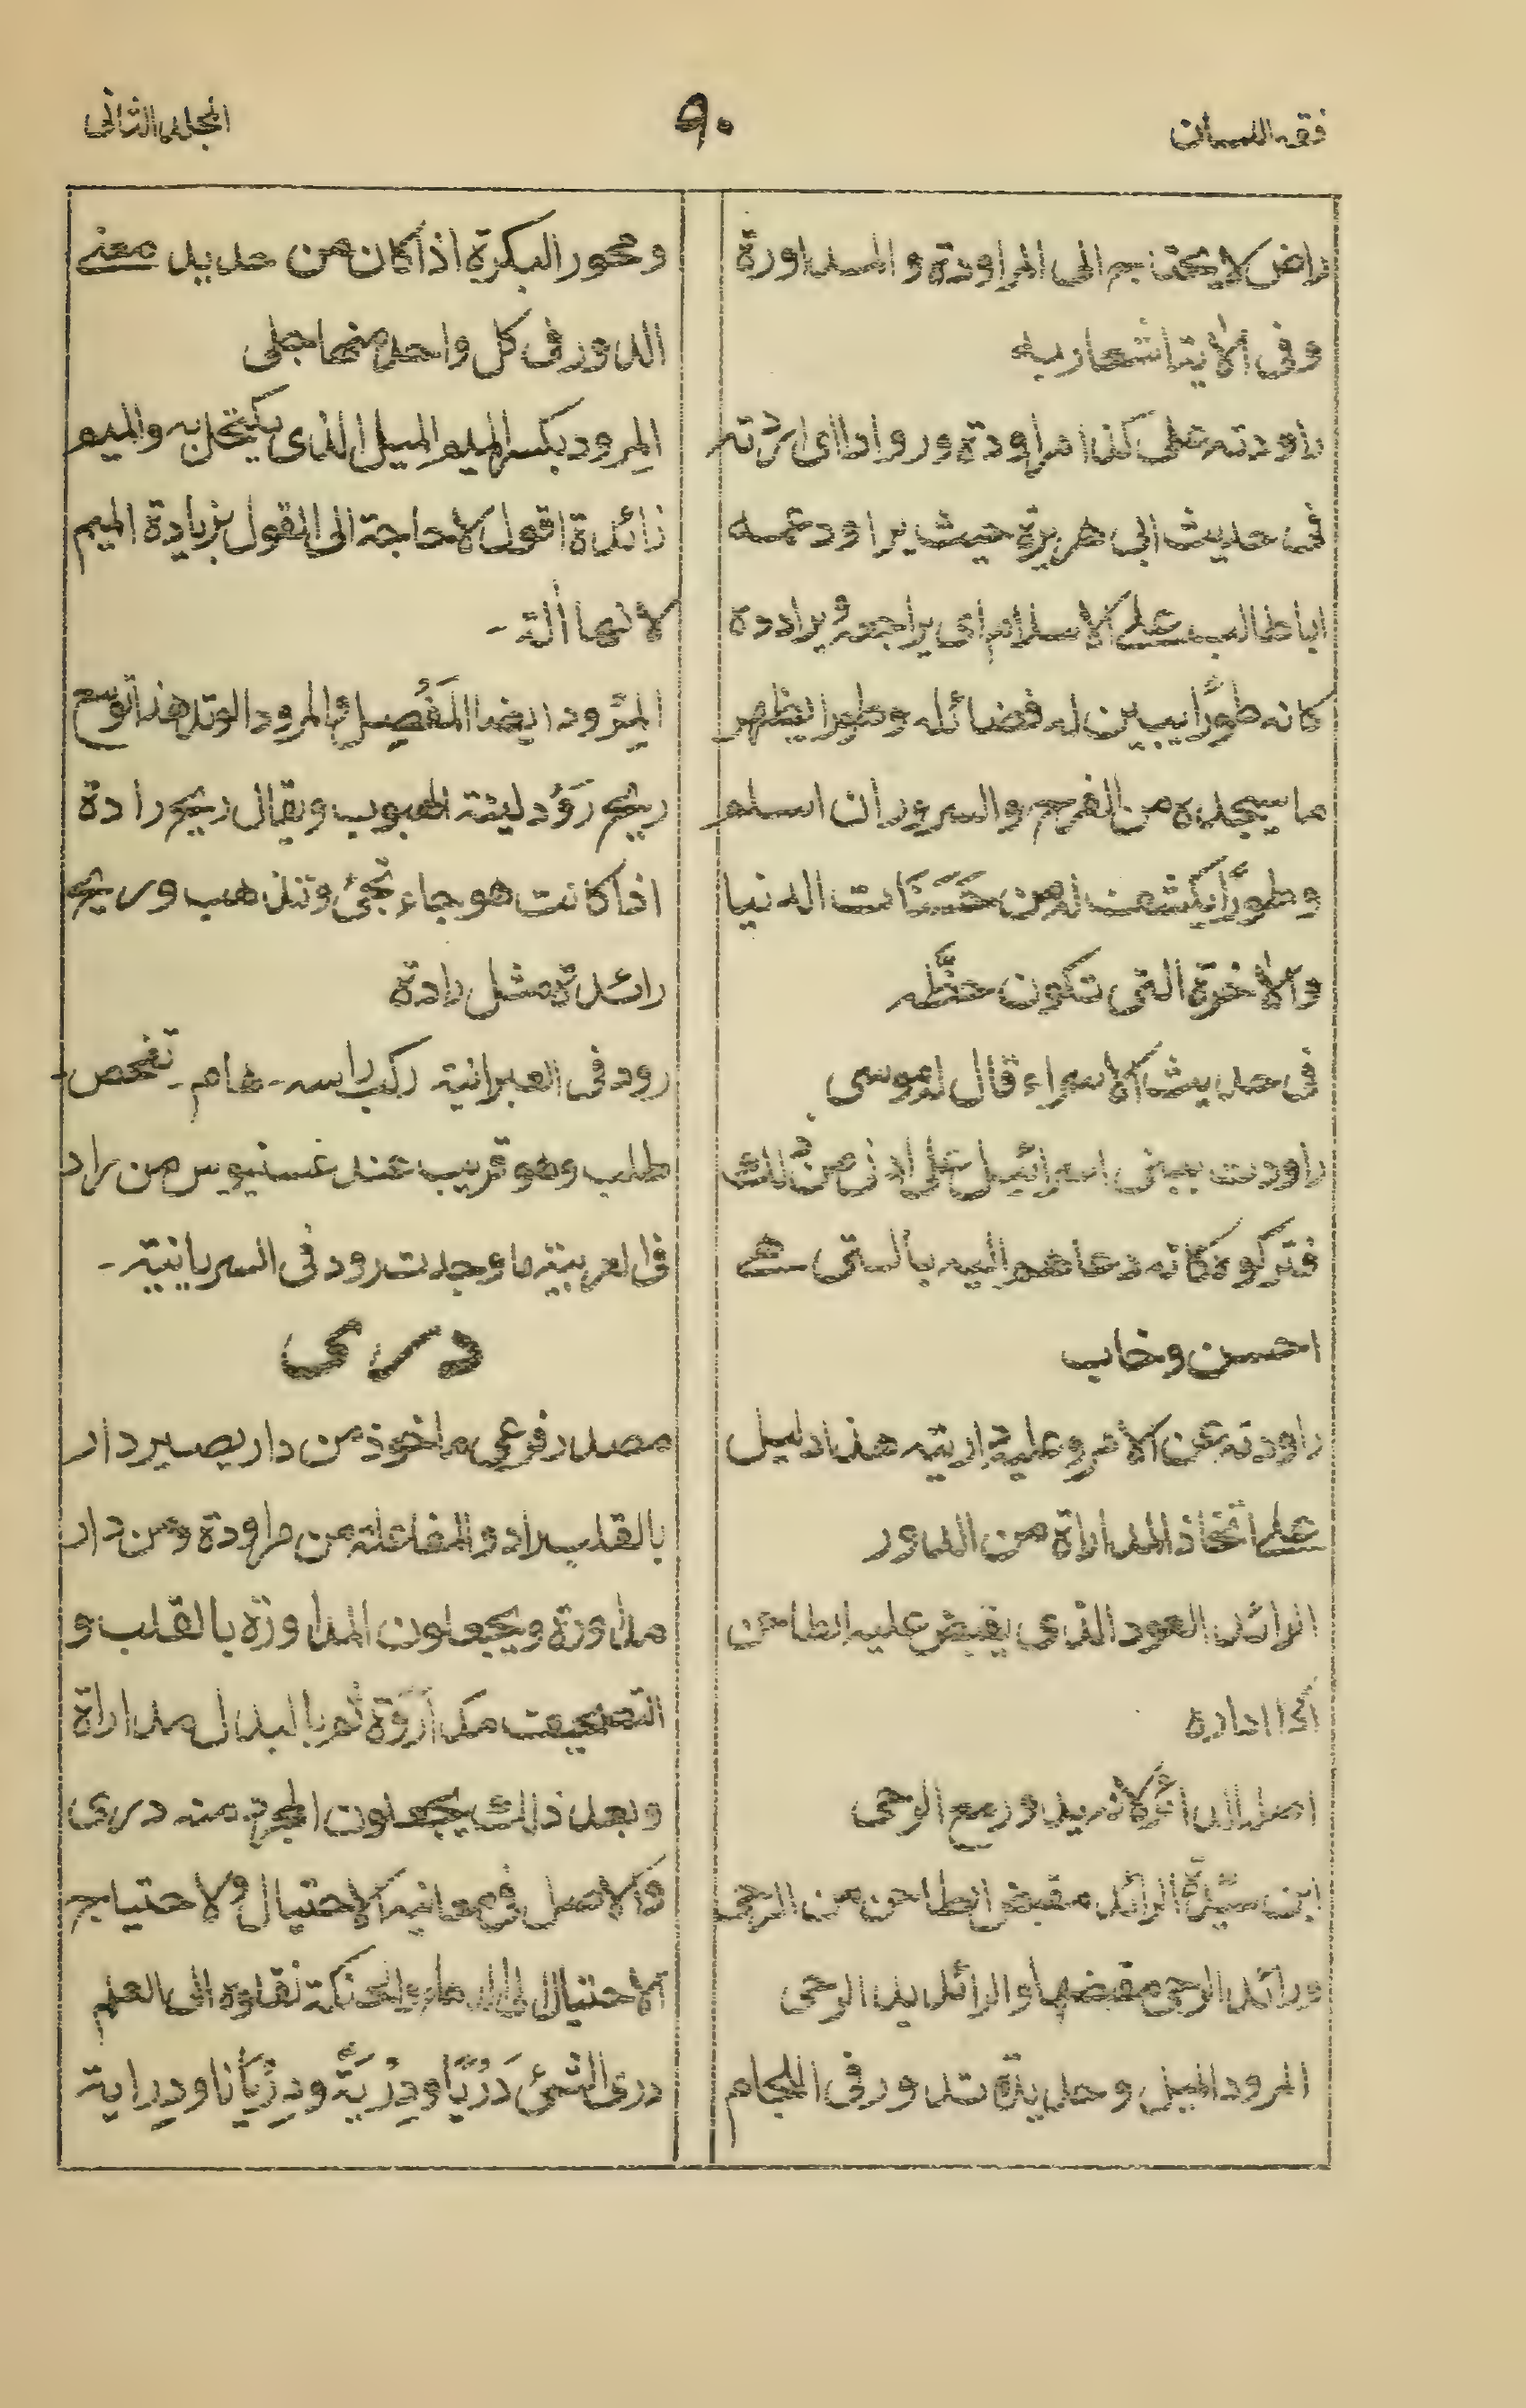 فقه اللسان
٩٠
المجلد الثانى
راض لا يحتاج الى المراودة والمداورة
وفى الاٰية اشعار به
راودته على كذا مراودة وروادا اى اردته
فى حديث ابى هريرة حيث يراود عمه
ابا طالب على الاسلام اى يراجعه ويرادده
كانه طورًا يبين له فضائله وطورا يظهر
ما سيجده من الفرح والسرور ان اسلم
وطورًا يكشف له من حَسَنَات الدنيا
والاٰخرة التى تكون حظَّه
فى حديث الاسراء قال له موسى
راودت بنى اسرائيل على ادنى من ذلك
فتركوه كانه دعاهم اليه بالتى هى
احسن وخاب
راودته عن الامر وعليه داريته هذا دليل
على اتخاذ المداراة من الدور
الرائد العود الذى يقبض عليه الطاحن
اذا اداره
اصل الدائر لانه يدور مع الرحى
ابن سيدة الرائد مقبض الطاحن من الرحى
ورائد الرحى مقبضها والرائد يد الرحى
المرود الميل وحديدة تدور فى اللجام
ومحور البكرة اذا كان من حديد معنى
الدور فى كل واحد منها جلى
المِرود بكسر الميم الميل الذى يكتحل به والميم
زائدة اقول لا حاجة الى القول بزيادة الميم
لانها اٰلة -
المِرْود ايضا المَفْصِل والمرود الوتد هذا توسع
ريح رَوْد لينة الهبوب ويقال ريح رادة
اذا كانت هوجاء تجئ وتذهب وريح
رائدة مثل رادة
رود فى العبرانية ركب راسه - هام - تفحص -
طلب وهو قريب عند غسنيوس من راد
فى العربية ما وجدت رود فى السريانية -
درى
مصدر فرعى ماخوذ من دار يصير دار
بالقلب راد والمفاعلة من مراودة ومن دار
مداورة ويجعلون المداورة بالقلب و
التصحيف مدارَوَة ثم بالبدل مداراة
وبعد ذالك يجعلون المجرد منه درى
والاصل فى معانيه الاحتيال ولاحتياج
الاحتيال الى الدهاء والحنكة نقلوه الى العلم
درى الشئ دَرْيًا ودِرْيَةً ودِرْيَانا ودِراية